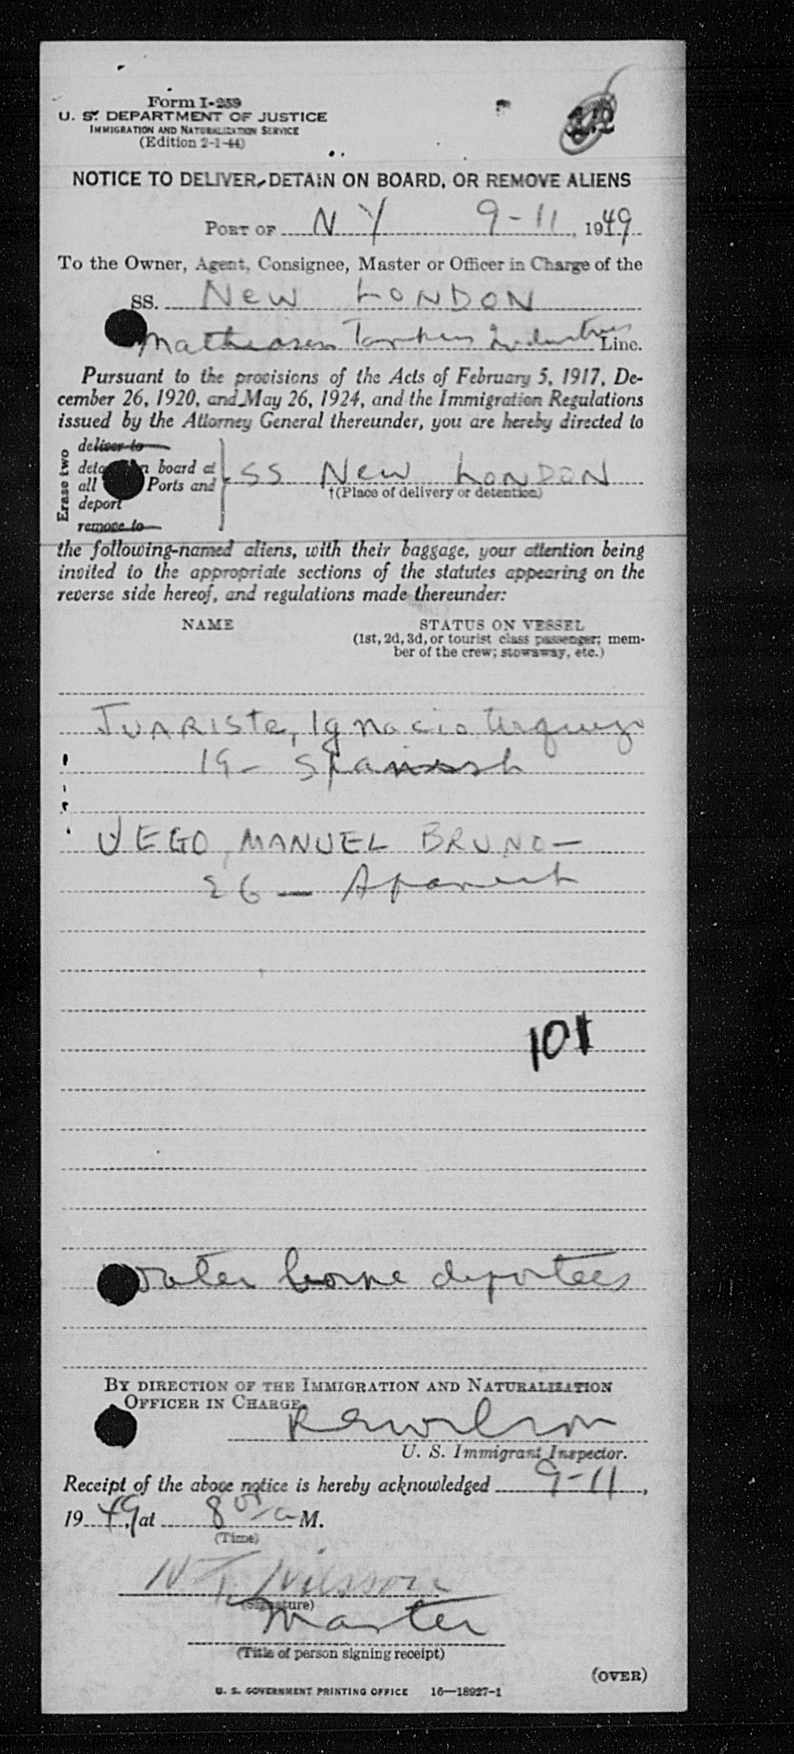 Form I-259
U. S. DEPARTMENT OF JUSTICE
IMMIGRATION AND NATURALIZATION SERVICE
(Edition 2-1-44)
NOTICE TO DELIVER, DETAIN ON BOARD, OR REMOVE ALIENS
PORT OF NY 9-11, 1949
To the Owner, Agent, Consignee, Master or Officer in Charge of the
SS. New LONDON
Tankers Industries Line.
Pursuant to the provisions of the Acts of February 5, 1917, De-
cember 26, 1920, and May 26, 1924, and the Immigration Regulations
issued by the Attorney General thereunder, you are hereby directed to
Erase two
deliver to
board at
all Ports and
deport
remove to
SS New LONDON
†(Place of delivery or detention)
the following-named aliens, with their baggage, your attention being
invited to the appropriate sections of the statutes appearing on the
reverse side hereof, and regulations made thereunder:
NAME STATUS ON VESSEL
(1st, 2d, 3d, or tourist class passenger; mem-
ber of the crew; stowaway, etc.)
JUARISTE, Ignacio
19- Spanish
VEGO, MANUEL BRUNO-
26 - Spanish
101
Water borne deportees
BY DIRECTION OF THE IMMIGRATION AND NATURALIZATION
OFFICER IN CHARGE.
Wilson
U. S. Immigrant Inspector.
Receipt of the above notice is hereby acknowledged 9-11,
1949, at 8 a M.
(Time)
Nilsson
(Signature)
Master
(Title of person signing receipt)
(OVER)
U. S. GOVERNMENT PRINTING OFFICE 16—18927-1